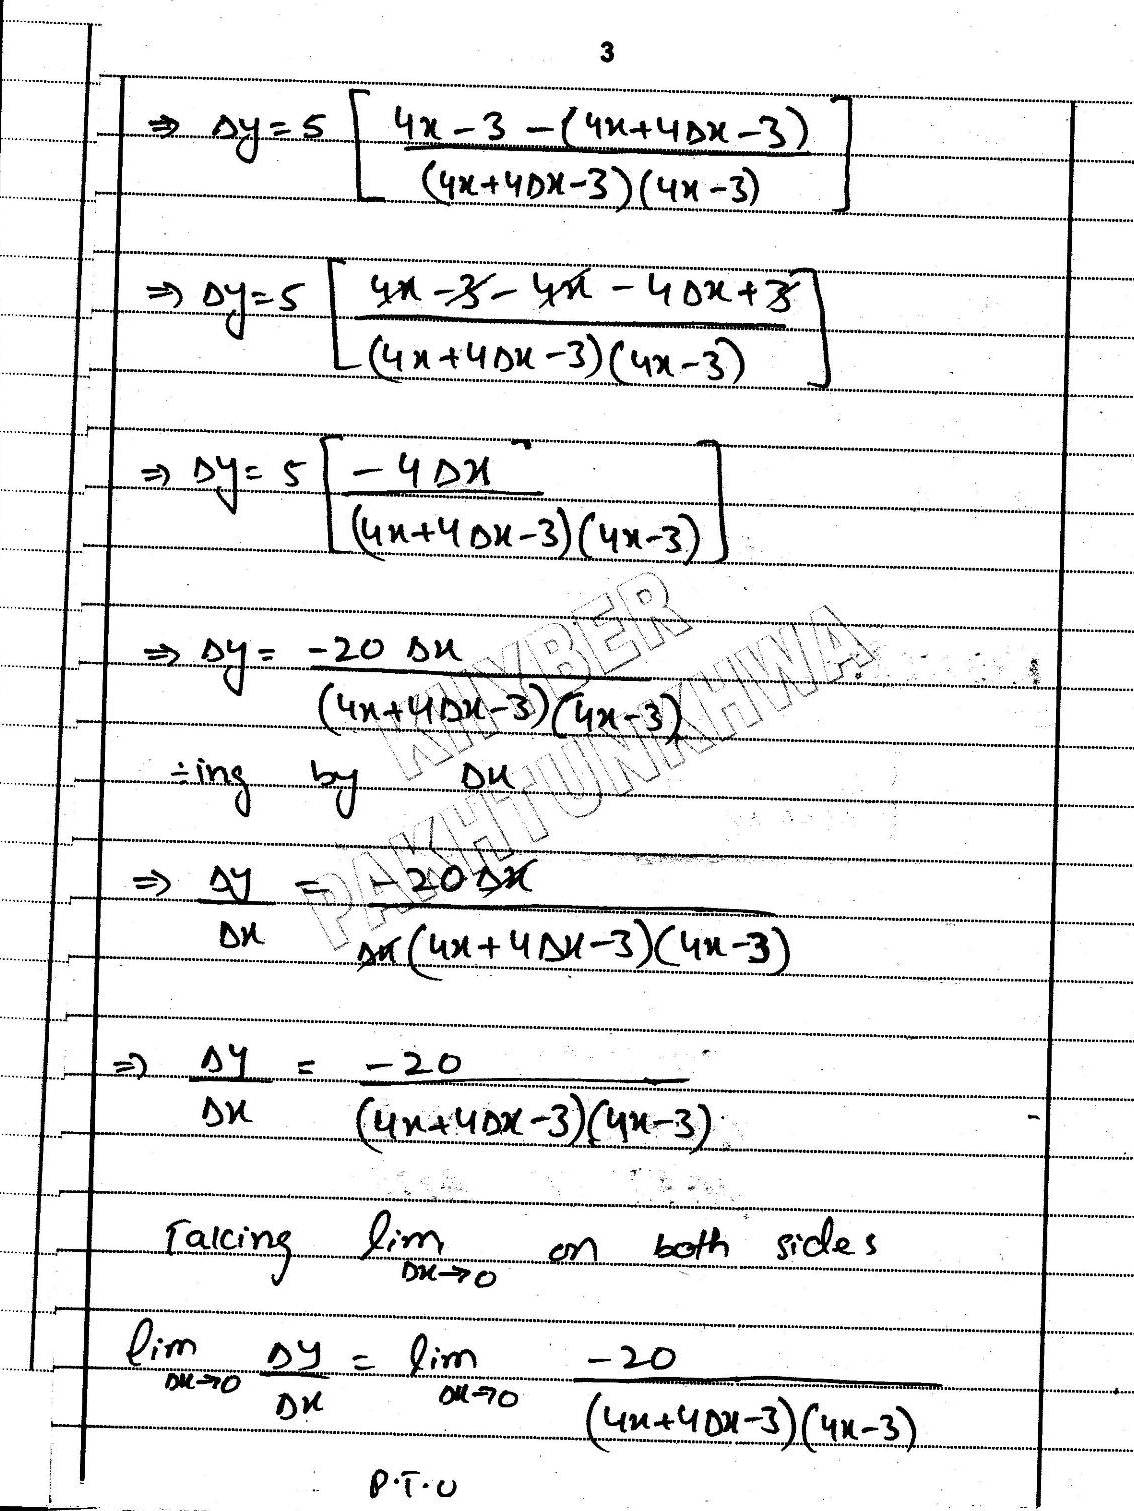 3
⇒ Δy = 5 [ 4x - 3 - (4x + 4Δx - 3) / (4x + 4Δx - 3)(4x - 3) ]
⇒ Δy = 5 [ 4x - 3 - 4x - 4Δx + 3 / (4x + 4Δx - 3)(4x - 3) ]
⇒ Δy = 5 [ -4Δx / (4x + 4Δx - 3)(4x - 3) ]
⇒ Δy = -20 Δx / (4x + 4Δx - 3)(4x - 3)
÷ing by Δx
⇒ Δy / Δx = -20 Δx / Δx (4x + 4Δx - 3)(4x - 3)
⇒ Δy / Δx = -20 / (4x + 4Δx - 3)(4x - 3)
Taking lim Δx→0 on both sides
lim Δx→0 Δy / Δx = lim Δx→0 -20 / (4x + 4Δx - 3)(4x - 3)
P.T.O
KHYBER
PAKHTUNKHWA